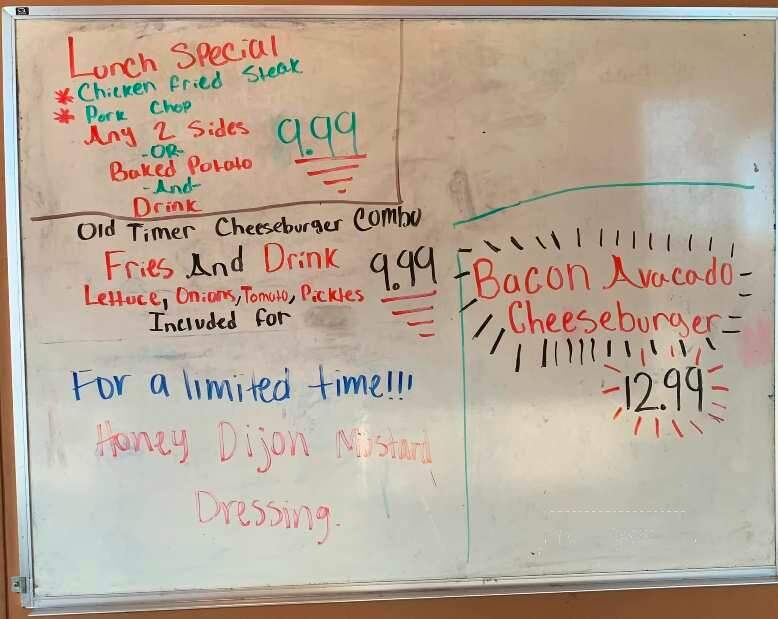 Lunch Special
* Chicken Fried Steak
* Pork Chop
Any 2 Sides
-OR-
Baked Potato
-And-
Drink
9.99
Old Timer Cheeseburger Combo
Fries And Drink
Lettuce, Onions, Tomato, Pickles
Included for
9.99
For a limited time!!!
Honey Dijon Mustard
Dressing.
Bacon Avacado
Cheeseburger
12.99